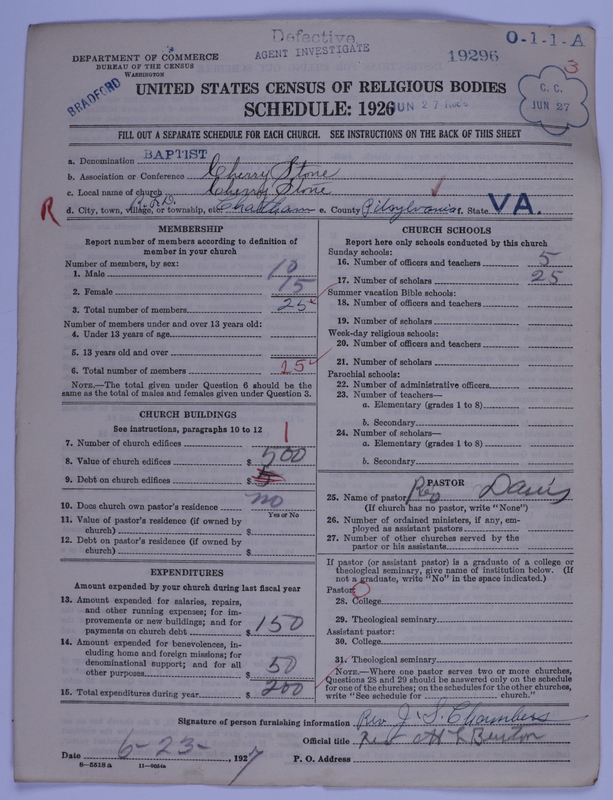 Defective
AGENT INVESTIGATE
19296
O-1-1-A
3
DEPARTMENT OF COMMERCE
BUREAU OF THE CENSUS
WASHINGTON
BRADFORD
C. C.
JUN 27
UNITED STATES CENSUS OF RELIGIOUS BODIES
SCHEDULE: 1926
JUN 27
FILL OUT A SEPARATE SCHEDULE FOR EACH CHURCH. SEE INSTRUCTIONS ON THE BACK OF THIS SHEET
a. Denomination BAPTIST
b. Association or Conference Cherry Stone
c. Local name of church Cherry Stone
R d. City, town, village, or township, etc. R.F.D. Chatham e. County Pitsylvania f. State VA.
MEMBERSHIP
Report number of members according to definition of
member in your church
Number of members, by sex:
1. Male 10
2. Female 15
3. Total number of members 25
Number of members under and over 13 years old:
4. Under 13 years of age
5. 13 years old and over
6. Total number of members 25
NOTE.—The total given under Question 6 should be the
same as the total of males and females given under Question 3.
CHURCH BUILDINGS
See instructions, paragraphs 10 to 12
7. Number of church edifices 1
8. Value of church edifices $ 500
9. Debt on church edifices $
10. Does church own pastor's residence no
Yes or No
11. Value of pastor's residence (if owned by
church) $
12. Debt on pastor's residence (if owned by
church) $
EXPENDITURES
Amount expended by your church during last fiscal year
13. Amount expended for salaries, repairs,
and other running expenses; for im-
provements or new buildings; and for
payments on church debt $ 150
14. Amount expended for benevolences, in-
cluding home and foreign missions; for
denominational support; and for all
other purposes $ 50
15. Total expenditures during year $ 200
CHURCH SCHOOLS
Report here only schools conducted by this church
Sunday schools:
16. Number of officers and teachers 5
17. Number of scholars 25
Summer vacation Bible schools:
18. Number of officers and teachers
19. Number of scholars
Week-day religious schools:
20. Number of officers and teachers
21. Number of scholars
Parochial schools:
22. Number of administrative officers
23. Number of teachers—
a. Elementary (grades 1 to 8)
b. Secondary
24. Number of scholars—
a. Elementary (grades 1 to 8)
b. Secondary
PASTOR
25. Name of pastor Rev Davis
(If church has no pastor, write "None")
26. Number of ordained ministers, if any, em-
ployed as assistant pastors
27. Number of other churches served by the
pastor or his assistants
If pastor (or assistant pastor) is a graduate of a college or
theological seminary, give name of institution below. (If
not a graduate, write "No" in the space indicated.)
Pastor:
28. College
29. Theological seminary
Assistant pastor:
30. College
31. Theological seminary
NOTE.—Where one pastor serves two or more churches,
Questions 28 and 29 should be answered only on the schedule
for one of the churches; on the schedules for the other churches,
write "See schedule for church."
Signature of person furnishing information Rev. J. S. Chambers
Official title Rev
Date 6-23-, 1927 P. O. Address
8—5518 a 11—9054a